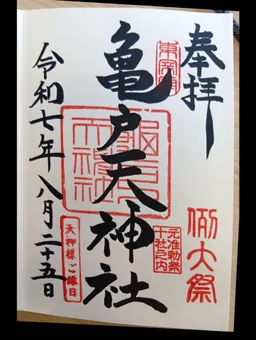 奉拝
例大祭
元准勅祭
十社之内
東宰府
亀戸天神社
亀戸天神社
天神様ご縁日
令和七年八月二十五日